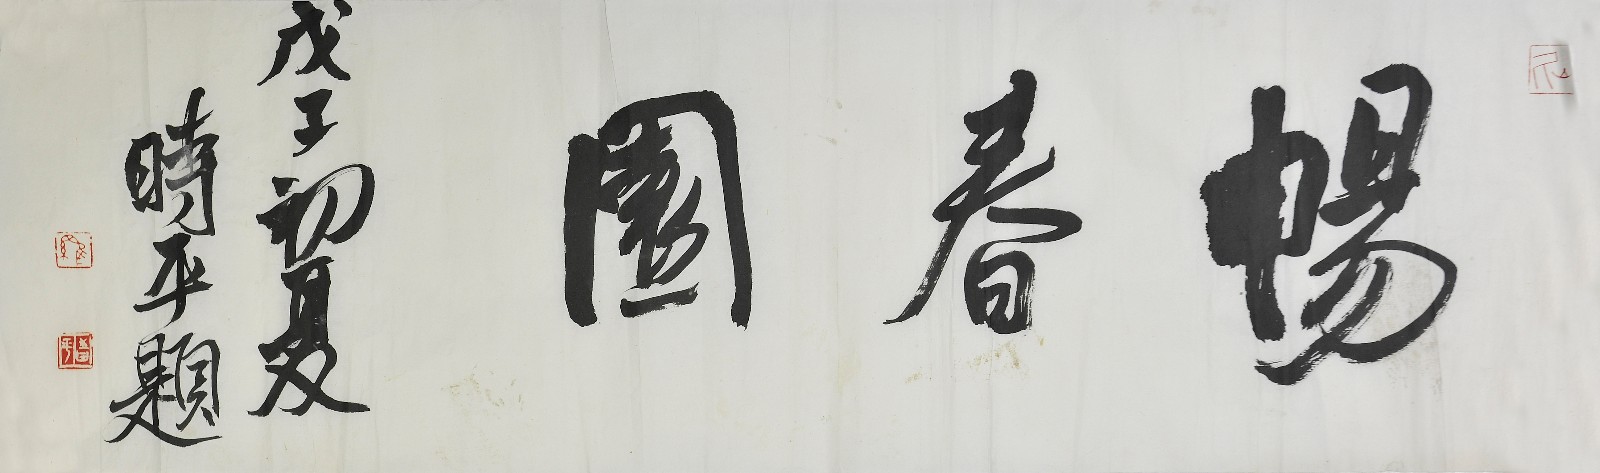 暢春園
戊子初夏
時平題